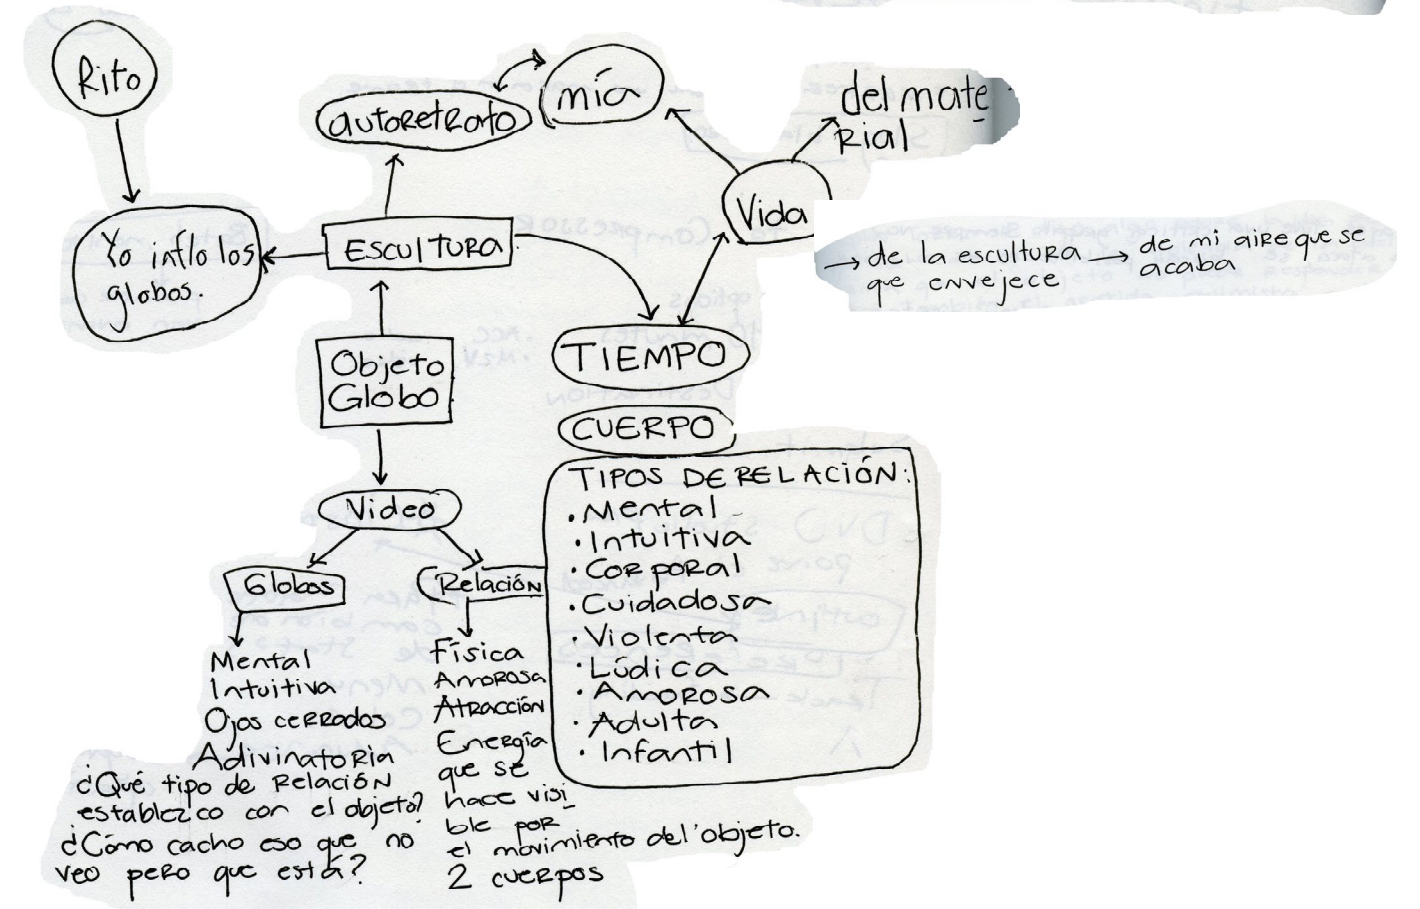 Rito
Yo inflo los
globos.
autoretrato
mía
del mate
rial
Vida
→ de la escultura → de mi aire que se
que envejece
acaba
ESCULTURA
Objeto
Globo
TIEMPO
CUERPO
Video
Globos
Relación
Mental
Intuitiva
Ojos cerrados
Adivinatoria
¿Qué tipo de Relación
establezco con el objeto?
¿Cómo cacho eso que no
veo pero que está?
Física
Amorosa
Atracción
Energía
que se
hace visi
ble por
el movimiento del objeto.
2 cuerpos
TIPOS DE RELACIÓN:
· Mental
· Intuitiva
· Corporal
· Cuidadosa
· Violenta
· Lúdica
· Amorosa
· Adulta
· Infantil